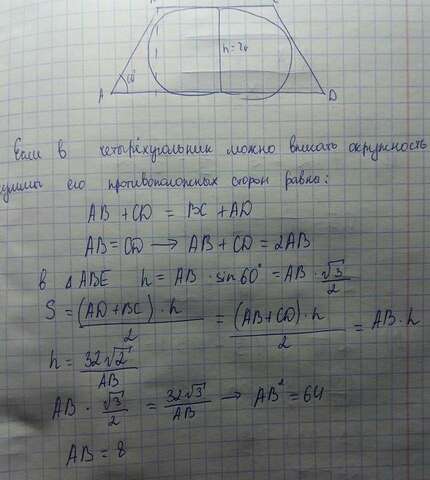 h=2r
A 60° D
Если в четырёхугольник можно вписать окружность
суммы его противоположных сторон равна:
AB + CD = BC + AD
AB = CD → AB + CD = 2AB
в △ABE h = AB · sin 60° = AB · √3/2
S = (AD+BC) · h / 2 = (AB+CD) · h / 2 = AB · h
h = 32√2 / AB
AB · √3/2 = 32√3 / AB → AB² = 64
AB = 8